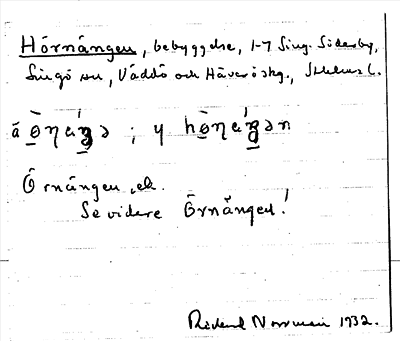 Hörnängen, bebyggelse, 1-7 Sing. Söderby,
Singö sn, Väddö och Häverö skg., Sthlms l.
å ò̲ŋéŋ̲ə ; y hò̲ŋéŋ̲ən
Örnängen, ek.
Se vidare Örnängen!
Rickard Norrman 1932.